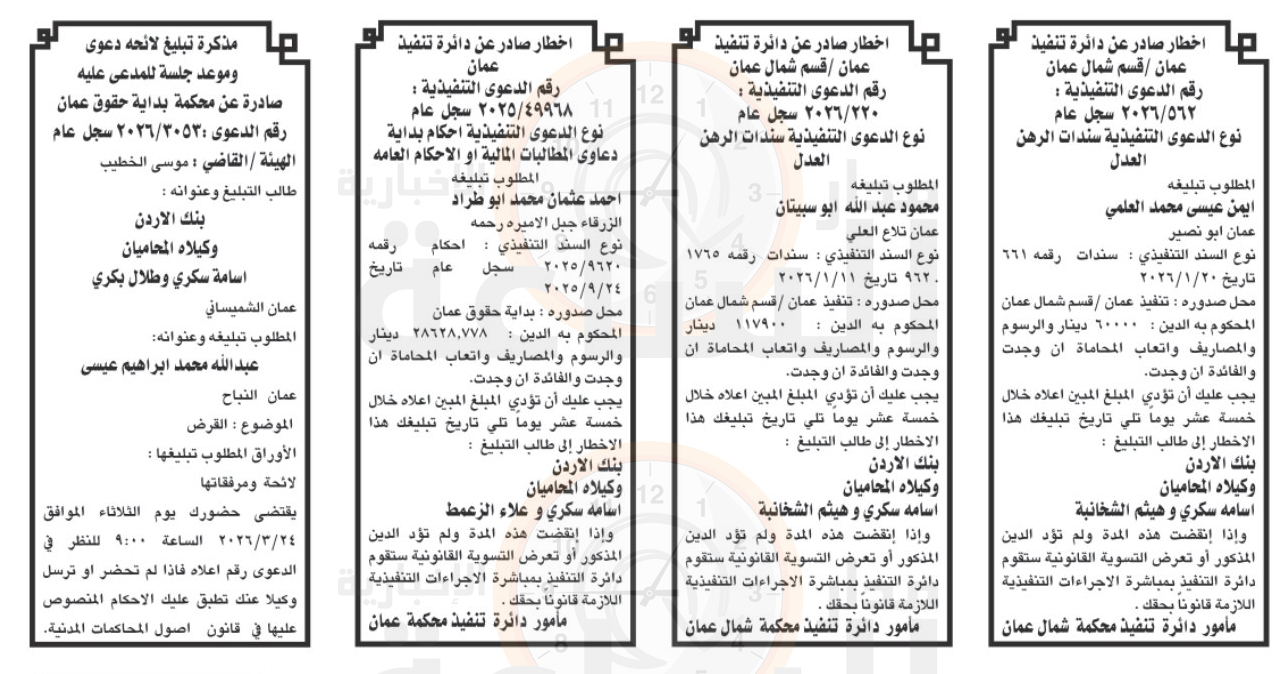 اخطار صادر عن دائرة تنفيذ
عمان /قسم شمال عمان
رقم الدعوى التنفيذية :
٢٠٢٦/٥٦٢ سجل عام
نوع الدعوى التنفيذية سندات الرهن
العدل
المطلوب تبليغه
ايمن عيسى محمد العلمي
عمان ابو نصير
نوع السند التنفيذي : سندات رقمه ٦٦١
تاريخ ٢٠٢٦/١/٢٠
محل صدوره : تنفيذ عمان /قسم شمال عمان
المحكوم به الدين : ٦٠٠٠٠ دينار والرسوم
والمصاريف واتعاب المحاماة ان وجدت
والفائدة ان وجدت.
يجب عليك أن تؤدي المبلغ المبين اعلاه خلال
خمسة عشر يوماً تلي تاريخ تبليغك هذا
الاخطار إلى طالب التبليغ :
بنك الاردن
وكيلاه المحاميان
اسامه سكري و هيثم الشخانبة
وإذا إنقضت هذه المدة ولم تؤد الدين
المذكور أو تعرض التسوية القانونية ستقوم
دائرة التنفيذ بمباشرة الاجراءات التنفيذية
اللازمة قانوناً بحقك .
مأمور دائرة تنفيذ محكمة شمال عمان
اخطار صادر عن دائرة تنفيذ
عمان /قسم شمال عمان
رقم الدعوى التنفيذية :
٢٠٢٦/٢٢٠ سجل عام
نوع الدعوى التنفيذية سندات الرهن
العدل
المطلوب تبليغه
محمود عبد الله ابو سبيتان
عمان تلاع العلي
نوع السند التنفيذي : سندات رقمه ١٧٦٥
٩٦٢ . تاريخ ٢٠٢٦/١/١١
محل صدوره : تنفيذ عمان /قسم شمال عمان
المحكوم به الدين : ١١٧٩٠٠ دينار
والرسوم والمصاريف واتعاب المحاماة ان
وجدت والفائدة ان وجدت.
يجب عليك أن تؤدي المبلغ المبين اعلاه خلال
خمسة عشر يوماً تلي تاريخ تبليغك هذا
الاخطار إلى طالب التبليغ :
بنك الاردن
وكيلاه المحاميان
اسامه سكري و هيثم الشخانبة
وإذا إنقضت هذه المدة ولم تؤد الدين
المذكور أو تعرض التسوية القانونية ستقوم
دائرة التنفيذ بمباشرة الاجراءات التنفيذية
اللازمة قانوناً بحقك .
مأمور دائرة تنفيذ محكمة شمال عمان
اخطار صادر عن دائرة تنفيذ
عمان
رقم الدعوى التنفيذية :
٢٠٢٥/٤٩٩٦٨ سجل عام
نوع الدعوى التنفيذية احكام بداية
دعاوى المطالبات المالية او الاحكام العامه
المطلوب تبليغه
احمد عثمان محمد ابو طراد
الزرقاء جبل الاميره رحمه
نوع السند التنفيذي : احكام رقمه
٢٠٢٥/٩٦٢٠ سجل عام تاريخ
٢٠٢٥/٩/٢٤
محل صدوره : بداية حقوق عمان
المحكوم به الدين : ٢٨٦٢٨,٧٧٨ دينار
والرسوم والمصاريف واتعاب المحاماة ان
وجدت والفائدة ان وجدت.
يجب عليك أن تؤدي المبلغ المبين اعلاه خلال
خمسة عشر يوماً تلي تاريخ تبليغك هذا
الاخطار إلى طالب التبليغ :
بنك الاردن
وكيلاه المحاميان
اسامه سكري و علاء الزعمط
وإذا إنقضت هذه المدة ولم تؤد الدين
المذكور أو تعرض التسوية القانونية ستقوم
دائرة التنفيذ بمباشرة الاجراءات التنفيذية
اللازمة قانوناً بحقك .
مأمور دائرة تنفيذ محكمة عمان
مذكرة تبليغ لائحه دعوى
وموعد جلسة للمدعى عليه
صادرة عن محكمة بداية حقوق عمان
رقم الدعوى :٢٠٢٦/٣٠٥٣ سجل عام
الهيئة /القاضي : موسى الخطيب
طالب التبليغ وعنوانه :
بنك الاردن
وكيلاه المحاميان
اسامة سكري وطلال بكري
عمان الشميساني
المطلوب تبليغه وعنوانه:
عبدالله محمد ابراهيم عيسى
عمان النباح
الموضوع : القرض
الأوراق المطلوب تبليغها :
لائحة ومرفقاتها
يقتضى حضورك يوم الثلاثاء الموافق
٢٠٢٦/٣/٢٤ الساعة ٩:٠٠ للنظر في
الدعوى رقم اعلاه فاذا لم تحضر او ترسل
وكيلا عنك تطبق عليك الاحكام المنصوص
عليها في قانون اصول المحاكمات المدنية.